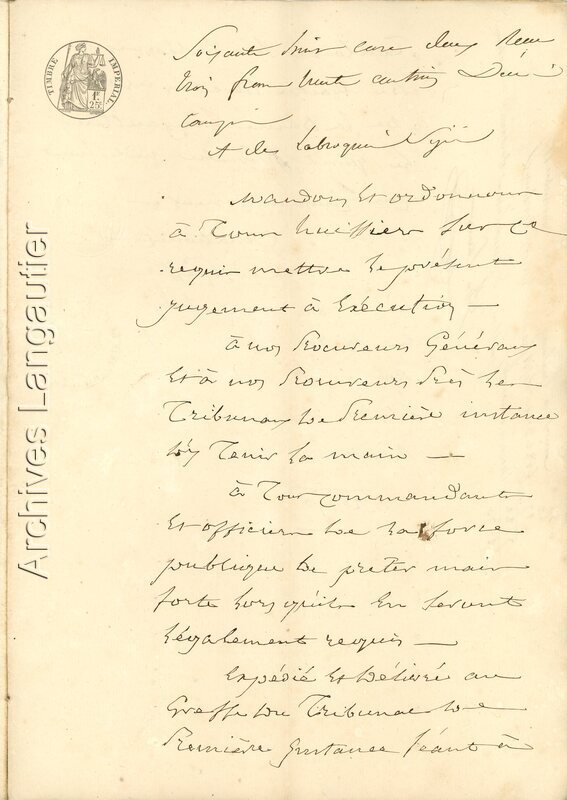 TIMBRE IMPERIAL
1F
25c
Soixante trois case deux Reçu
trois francs trente centimes Décime
compris
de Labroquère Signé
Mandons et ordonnons
à Tous huissiers sur ce
requis mettre le présent
jugement à Exécution —
à nos Procureurs Généraux
et à nos Procureurs Près les
Tribunaux de Première instance
d'y Tenir la main —
à Tous commandants
et officiers de la force
publique de prêter main
forte lorsqu'ils en seront
légalement requis —
Expédié et délivré au
Greffe du Tribunal de
Première Instance séant à
Archives Langautier